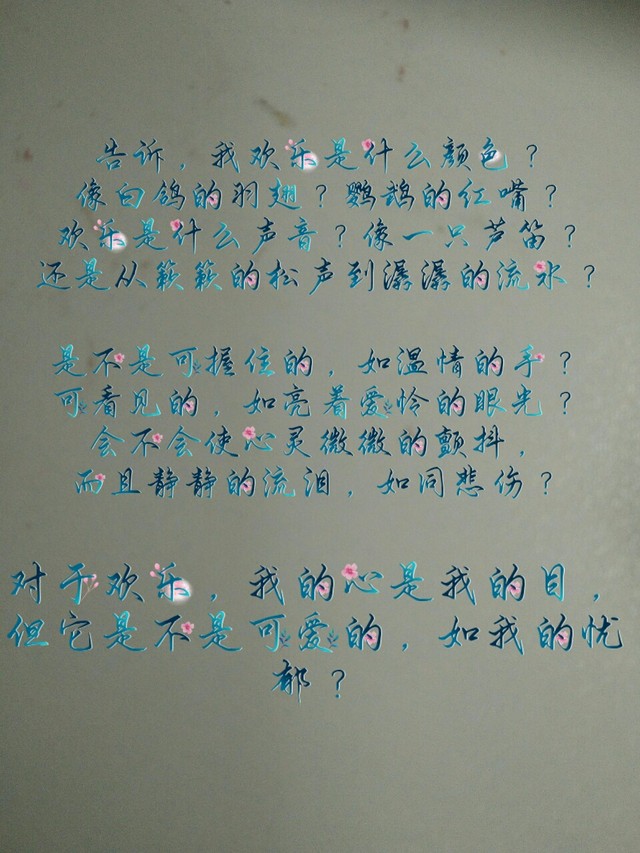 告诉，我欢乐是什么颜色？
像白鸽的羽翅？鹦鹉的红嘴？
欢乐是什么声音？像一只芦笛？
还是从簌簌的松声到潺潺的流水？
是不是可握住的，如温情的手？
可看见的，如亮着爱怜的眼光？
会不会使心灵微微的颤抖，
而且静静的流泪，如同悲伤？
对于欢乐，我的心是我的目，
但它是不是可爱的，如我的忧
郁？